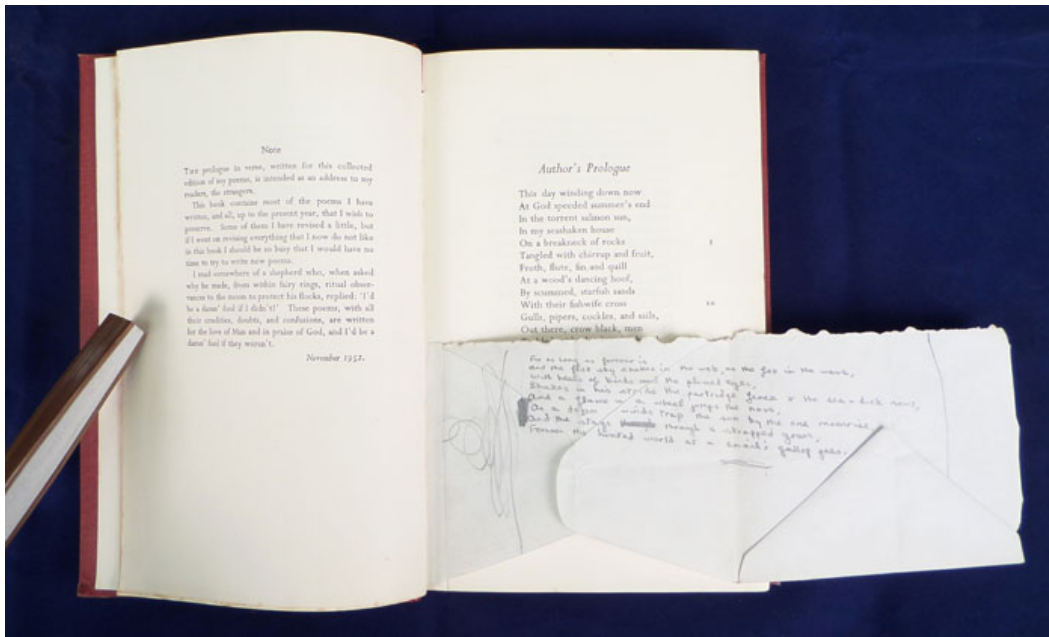 Note
THE prologue in verse, written for this collected
edition of my poems, is intended as an address to my
readers, the strangers.
This book contains most of the poems I have
written, and all, up to the present year, that I wish to
preserve. Some of them I have revised a little, but
if I went on revising everything that I now do not like
in this book I should be so busy that I would have no
time to try to write new poems.
I read somewhere of a shepherd who, when asked
why he made, from within fairy rings, ritual obser-
vances to the moon to protect his flocks, replied: 'I'd
be a damn' fool if I didn't!' These poems, with all
their crudities, doubts, and confusions, are written
for the love of Man and in praise of God, and I'd be a
damn' fool if they weren't.
November 1952.
Author's Prologue
This day winding down now
At God speeded summer's end
In the torrent salmon sun,
In my seashaken house
On a breakneck of rocks
Tangled with chirrup and fruit,
Froth, flute, fin and quill
At a wood's dancing hoof,
By scummed, starfish sands
With their fishwife cross
10
Gulls, pipers, cockles, and sails,
Out there, crow black, men
For as long as forever is
And the fast sky shakes in the web, as the fox in the wave,
With heads of birds and the plumed eyes,
Shakes in his the partridge fence & the sea-duck rows,
And a flame in a wheel jumps the nave,
As a dozen winds trap the sun by the
And the stags through a trapped grove,
Forever the hunted world at a snail's gallop goes.